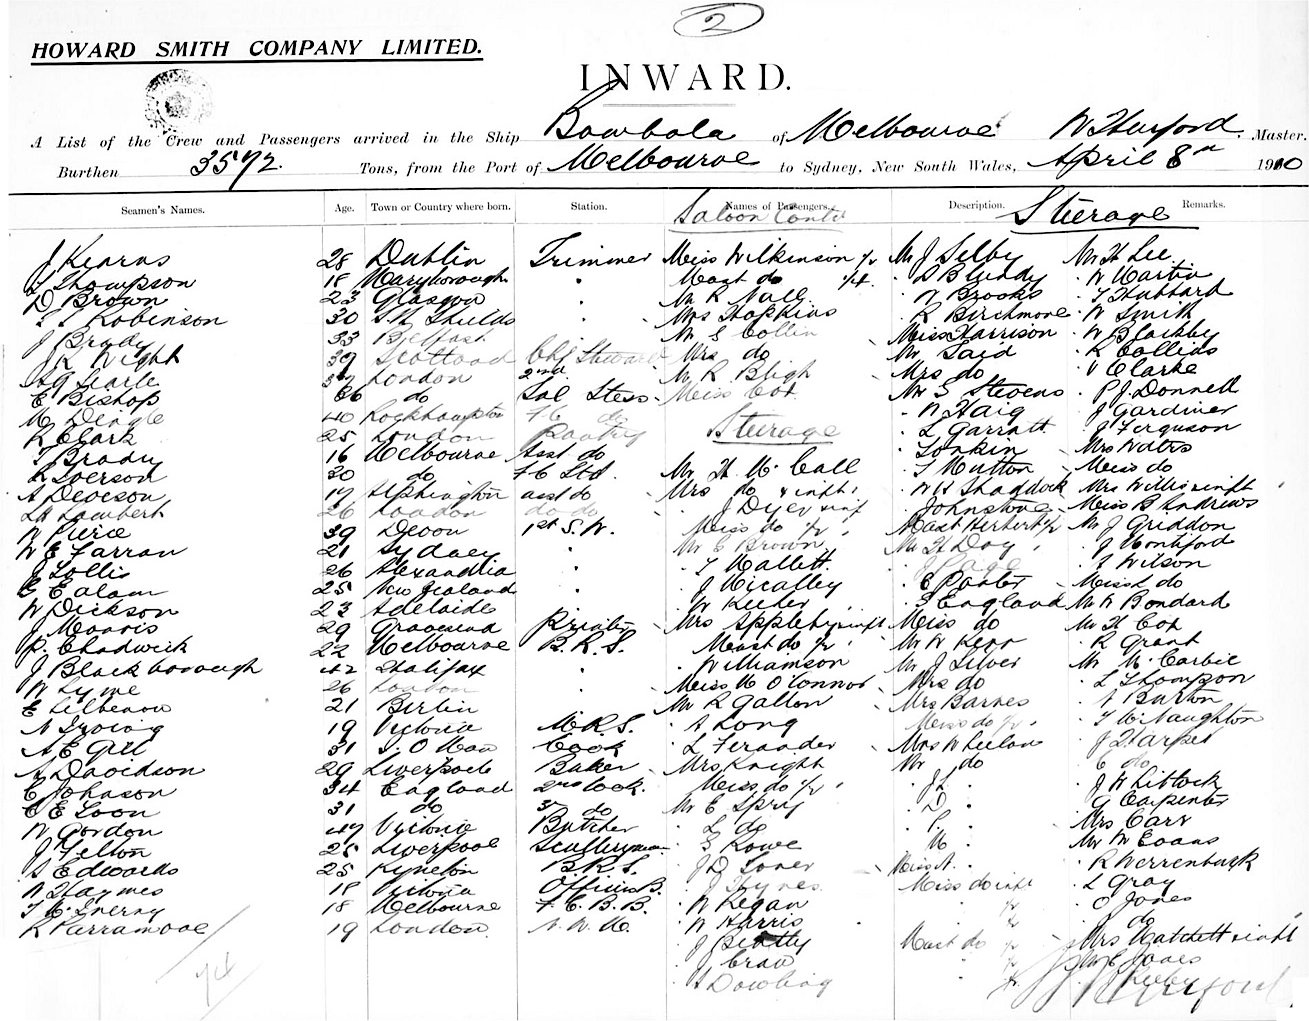 2
HOWARD SMITH COMPANY LIMITED.
INWARD.
A List of the Crew and Passengers arrived in the Ship Bombala of Melbourne W Hurford Master.
Burthen 3572. Tons, from the Port of Melbourne to Sydney, New South Wales, April 8th 1910
Seamen's Names. Age. Town or Country where born. Station. Names of Passengers. Description. Remarks.
Saloon Contd Steerage
J Kearns 28 Dublin Trimmer Miss Wilkinson Mr J Selby Mr H Lee
Thompson 18 Maryborough " Mast do " Blundy " W Martin
D Brown 23 Glasgow " Mr R Nall " W Brooks " T Hubbard
Robinson 30 Shields " Mrs Hopkins " R Birchmore " W Smith
J Brady 33 Belfast Mr S Collin Miss Harrison " W Blackby
J R Wight 39 Scotland Chf Steward Mrs do Mr Said " R Collins
Searle London 2nd Mr R Bligh Mrs do " V Clarke
E Bishop do Sal Stess Miss Cox Mr S Stevens " P J Donnell
M Dingle 40 Rockhampton F C do " W Haig " J Gardiner
R Clark 25 London Pantry Steerage " L Garratt " J Ferguson
T Brady 16 Melbourne Asst do " Tonkin Mrs Waters
Iverson 30 do F C Std Mr H McCall " T Mutton " Miss do
A Deveson 19 asst do Mrs do & inft " W H Shaddock Mrs Willis & inft
Lambert 26 London do do " J Dyer & inf " Johnstone Miss B Andrews
W Pierce 39 Devon 1st S.W. Miss do Mast Herbert Mr J Griddon
W E Farran 21 Sydney " Mr C Brown Mr H Day " J Montiford
J Lollis 26 Alexandria " T Mallett " J Page " J Wilson
G Ealam 25 New Zealand " J Micalley " E Porter " Miss L do
W Dickson 23 Adelaide " W Keeler " S England Mr W Bondard
J Morris 29 Gravesend Printer Mrs Appleby & inft Miss do Mr H Cox
P. Chadwick 22 Melbourne B.R.S. Mast do Mr W Kerr " R Grant
J Blackborough 42 Halifax " Williamson Mr J Silver Mr McCarbie
W Lyme 26 London " Miss M O'Connor Mrs do " L Thompson
E Lilbenow 21 Berlin Mr R Gallon Mrs Barnes " A Burton
N Irving 19 Victoria M.R.S. " A Long Miss do " T McNaughton
A E Gill 31 I. O Man Cook " L Fernander Mrs Wheelan " J Harper
A Davidson 29 Liverpool Baker Mrs Knight Mr do " E do
E Johnson 34 England 2nd Cook. Miss do " J L " " J Whitlock
E E Loon 31 do 3rd do Mr E Sprig " D " " G Carpenter
W Gordon 47 Victoria Butcher " L do Mrs Carr
J Felton 25 Liverpool Scullyman " S Rowe " M " Mr W Evans
S Edwards 25 Kyneton B.R.S. " J D Toner Miss A " " R Werrenback
W Haymes 18 Victoria Officers B. " J Hynes Miss do inft " L Gray
T McInerny 18 Melbourne F.C.B.B. " W Regan " O Jones
R Parramore 19 London N.W.M. " W Harris " do
74 " J Beatty Mast do Mrs Matchett & inft
" J Craw Mr E Jones
" Dowling
W Hurford